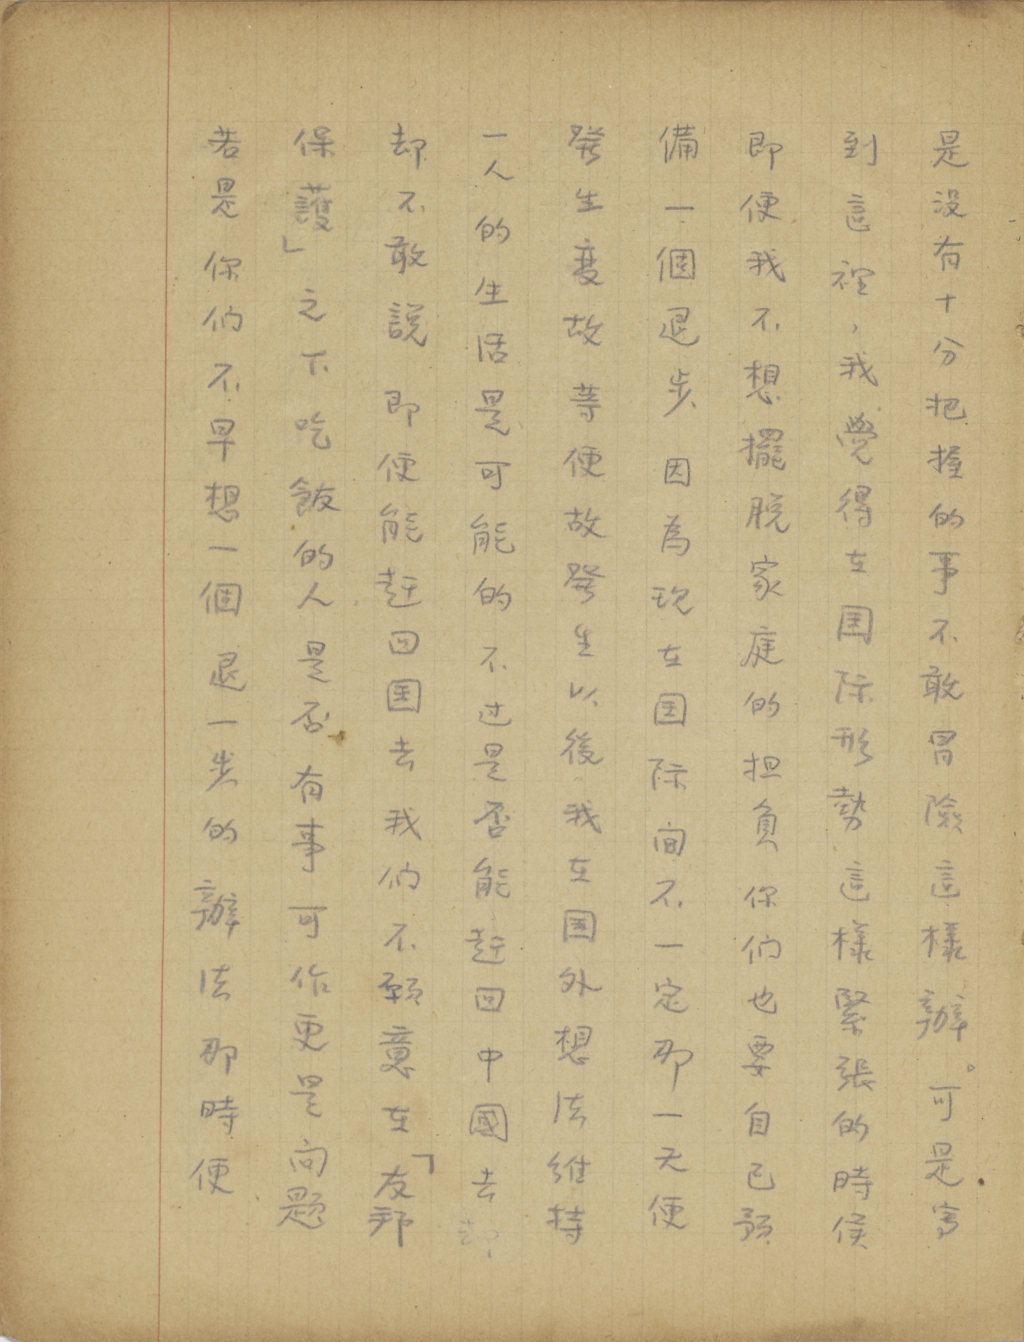 是没有十分把握的事不敢冒險這樣辦。可是寫
到這裡，我覺得在囯际形勢這樣緊張的時候
即便我不想擺脱家庭的担負你们也要自己預
備一個退步因為現在囯际间不一定那一天便
發生変故等便故發生以後我在囯外想法維持
一人的生活是可能的不过是否能赶回中國去却
却不敢說即便能赶回囯去我们不願意在「友邦
保護」之下吃飯的人是否有事可作更是问题
若是你们不早想一個退一步的辦法那時便